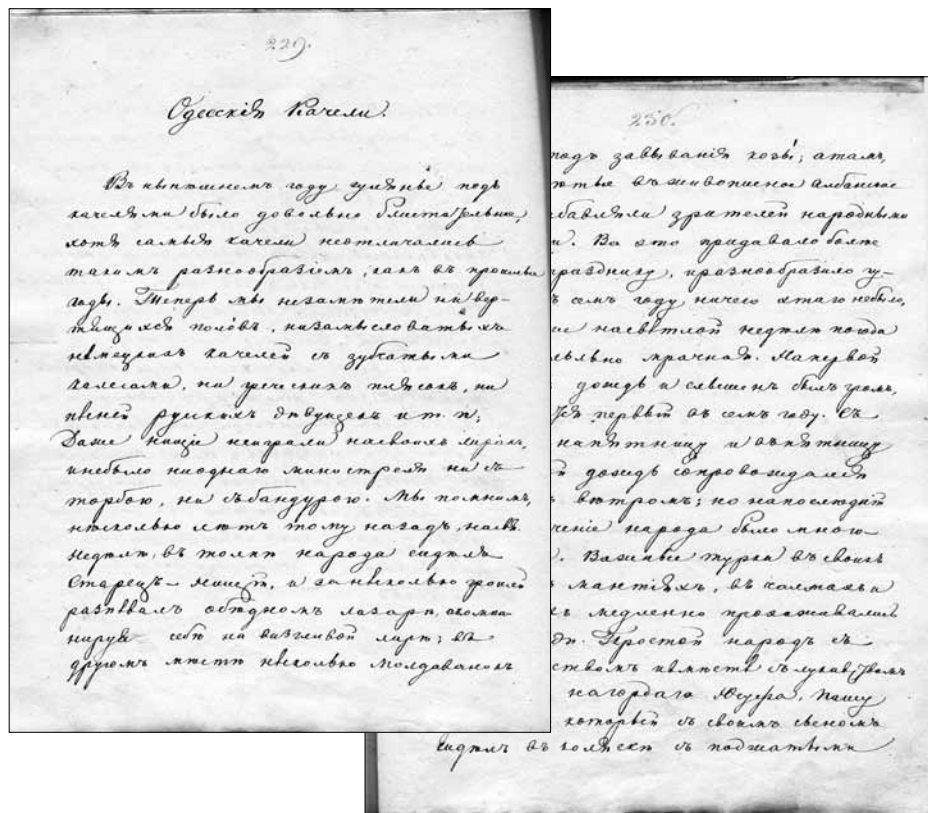 229.
Одесскія Качели.
Въ нынѣшнемъ году гулянье подъ
качелями было довольно блистательно,
хотя самыя качели неотличались
такимъ разнообразіемъ, какъ въ прошлые
годы. Теперь мы незамѣтели ни вер-
тящихся половъ, низамысловатыхъ
нѣмецкихъ качелей съ зубчатыми
колесами, ни греческихъ плясокъ, ни
пѣсней русскихъ дѣвушекъ и т. п;
Даже нищіе неиграли насвоихъ лирахъ,
инебыло ниоднаго минестреля ни съ
торбою, ни събандурою. Мы помнимъ,
нѣсколько лѣтъ тому назадъ, насв.
недѣлѣ, въ толпѣ народа сидѣлъ
старецъ-нищій, и за нѣсколько грошей
распѣвалъ обѣдномъ лазарѣ, акомпа
нируя себѣ на визгливой лирѣ; въ
другомъ мѣстѣ нѣсколько Молдаванокъ
230.
подъ завыванія козы; атамъ,
въживописное Албанское
бавляли зрателей народными
и. Вс это придавало болѣе
празднику, иразнообразило гу-
семъ году ничего этаго небыло,
насвѣтлой недѣлѣ погода
мрачная. Напервой
дождь и слышенъ былъ громъ,
первый въ семъ году. Съ
напятницу и въпятницу
дождь сопровождался
вѣтромъ; но напослѣдній
ченіе народа было много-
Важные турки въ своихъ
мантіяхъ, въ чалмахъ и
медленно прохаживались
Простой народъ съ
ствомъ ивмѣстѣ сълукавством
нагордаго Юсуфа, Пашу
который съ своимъ сыномъ
сидѣлъ въ коляскѣ съ поджатыми